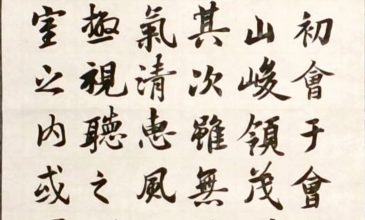 初會于會
山峻領茂
其次雖無
氣清惠風
極視聽之
室之內或